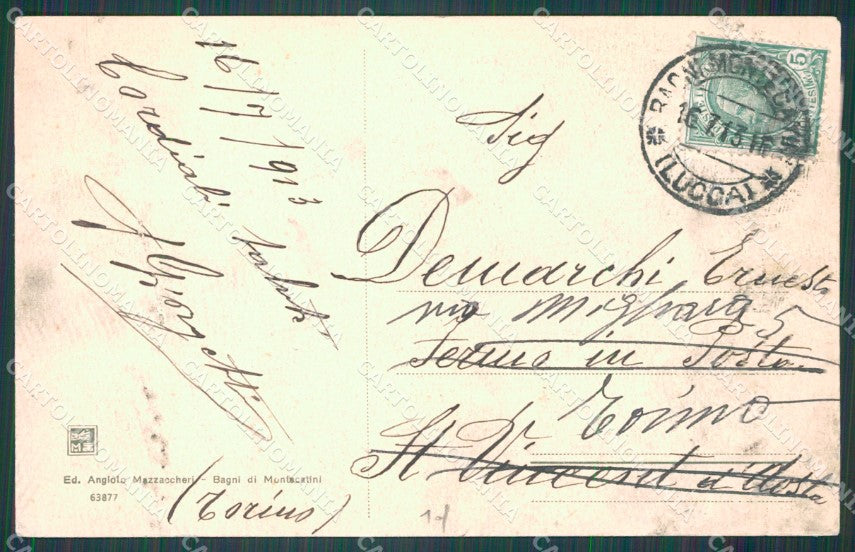 16/7/913
Cordiali saluti
Sig
Demarchi Ernesto
via
5
Fermo in Posta
Torino
St Vincent d'Aosta
(Torino)
Ed. Angiolo Mazzaccheri - Bagni di Montecatini
63877
BAGNI MONTECATINI
16.7.13
* (LUCCA) *
5
CARTOLINOMANIA